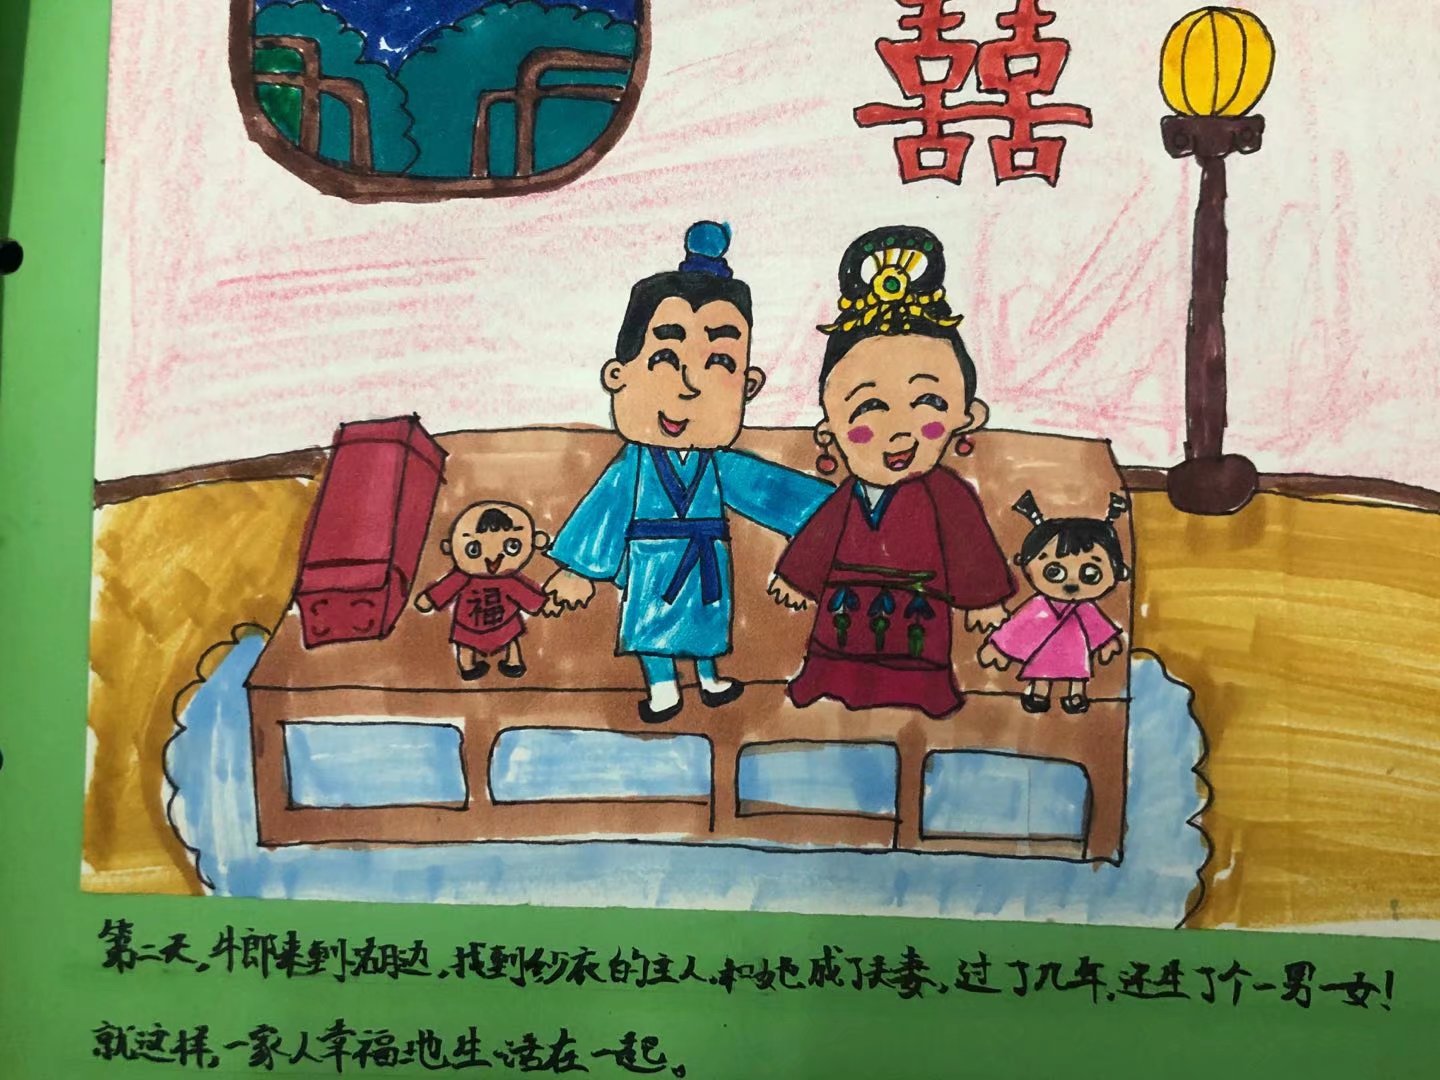 囍
福
第二天,牛郎来到湖边,找到纱衣的主人,和她成了夫妻,过了几年,还生了个一男一女!
就这样,一家人幸福地生活在一起。